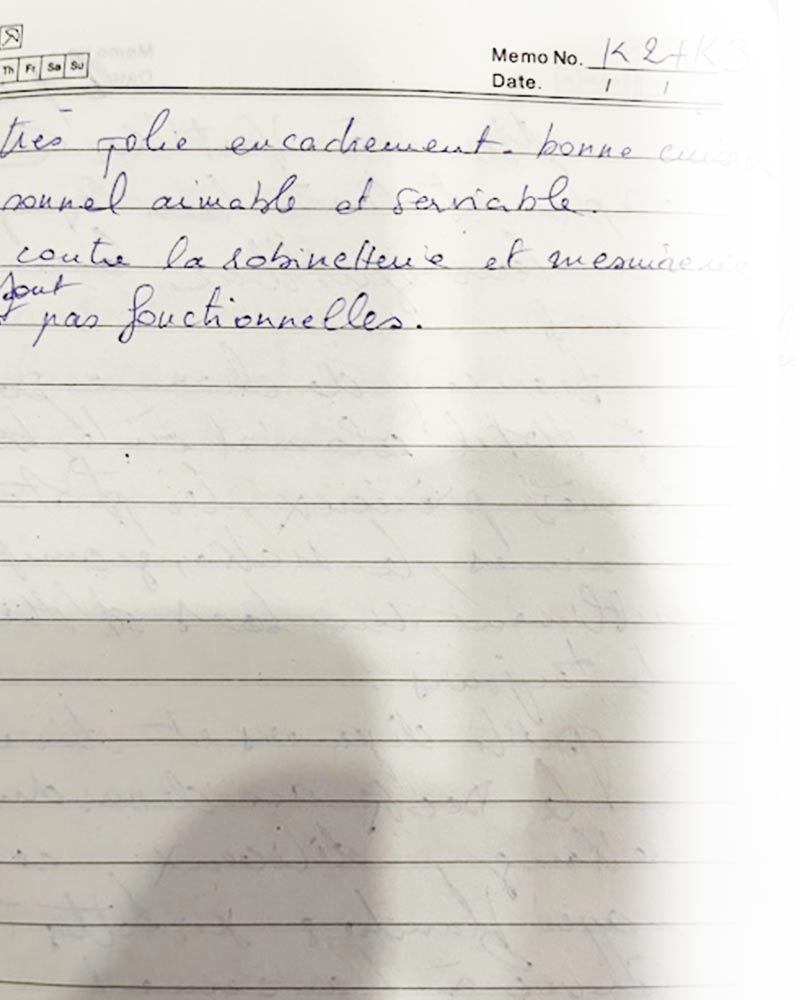 Th Fr Sa Su
Memo No. K2+K3
Date. / /
très jolie encadrement. bonne cuisine
sonnel aimable et serviable.
contre la robinetterie et
sont
pas fonctionnelles.